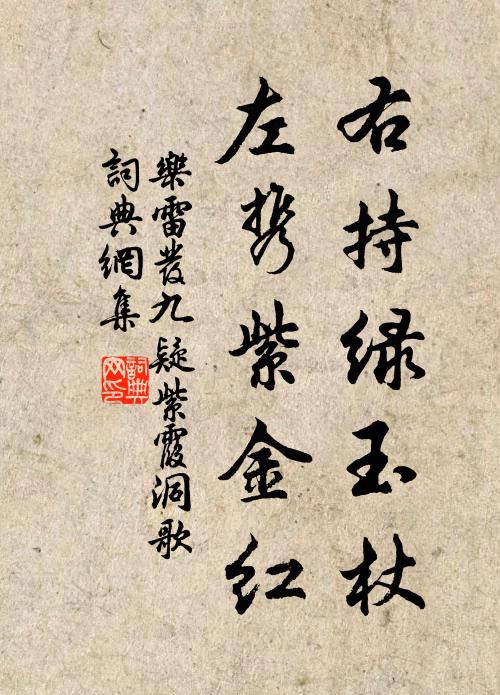 右持绿玉杖
左携紫金红
樂雷發九疑紫霞洞歌
詞典網集
詞典网印